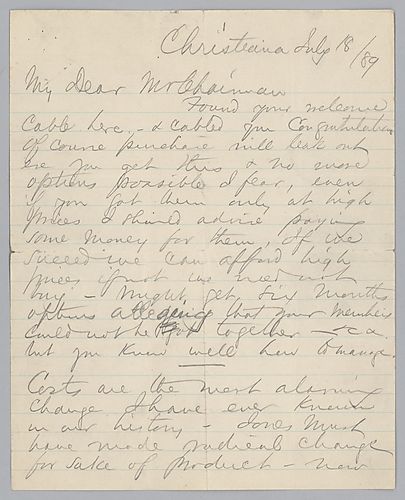 Christiania July 18/89
My Dear Mr Chairman
Found your welcome
Cable here, & cabled you Congratulations
Of course purchase will leak out
ere you get this & no more
options possible I fear, even
if you got them only at high
prices I should advise paying
some money for them. If we
succeed we can afford high
prices if not we need not
buy – Might get six months
options alleging that your members
could not be got together – &ca
but you know well how to manage.
Costs are the most alarming
change I have ever known
in our history – Jones must
have made radical change
for sake of product – now